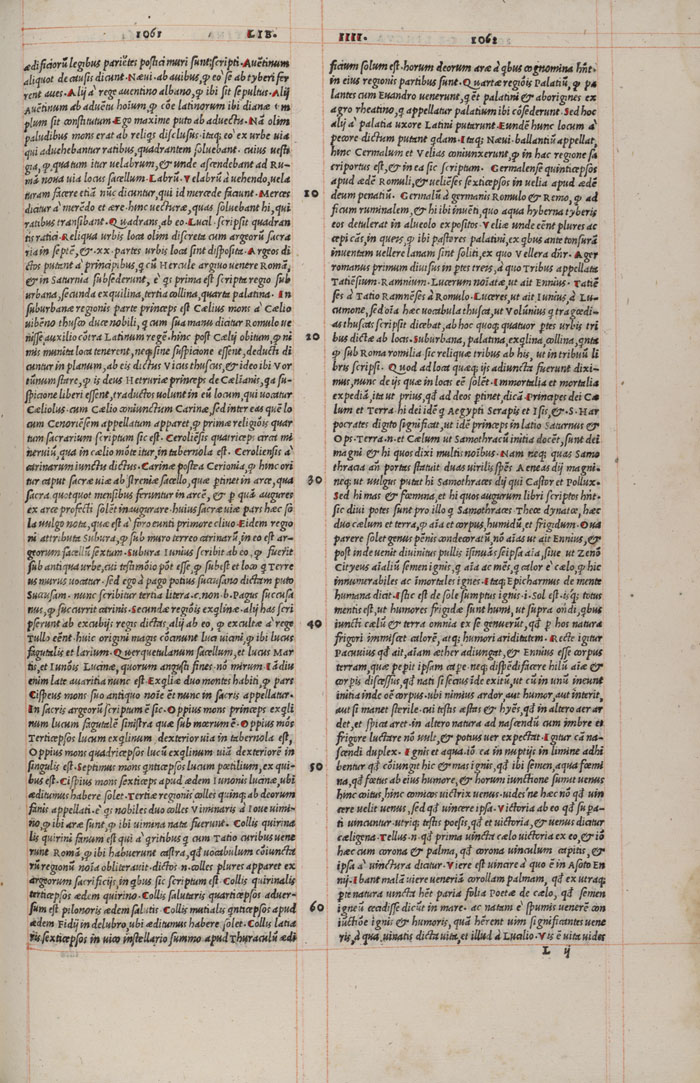 1061 LIB. IIII. 1062
ædificiorũ legibus pariẽtes postici muri sunt scripti. Auẽtinum
aliquot de causis dicunt. Næui. ab auibus, ꝙ eo se ab tyberi fer
rent aues. Alij a rege auentino albano, ꝙ ibi sit sepultus. Alij
Auẽtinum ab aduẽtu hoĩum, ꝙ cõe latinorum ibi dianæ tẽ
plum sit constitutum. Ego maxime puto ab aduectu. Nã olim
paludibus mons erat ab reliqs disclusus. itaq; eo ex urbe uia
qui aduehebantur ratibus, quadrantem soluebant. cuius uesti
gia, ꝙ, quatum itur uelabrum, & unde ascendebant ad Ru-
mã noua uia locus sacellum. Labrũ. Velabrũ a uehendo, uela
turam facere etiã nũc dicuntur, qui id mercede faciunt. Merces
dicitur a merẽdo et ære. hinc uecturæ, quas soluebant hi, qui
ratibus transibant. Quadrans, ab eo. Lucil. scripsit quadran
tis ratiti. Reliqua urbis loca olim discreta cum argeorũ sacra
ria in septẽ, & .xx. partes urbis loca sint disposita. Argeos di
ctos putant a principibus, q cũ Hercule argiuo uenere Romã,
& in Saturnia subsederunt, è qs prima est scripta regio sub
urbana, secunda exquilina, tertia collina, quarta palatina. In
suburbanæ regionis parte princeps est Cælius mons a Cælio
uibẽno thusco duce nobili, q cum sua manu dicitur Romulo ue
nisse auxilio cõtra Latinum regẽ. hinc post Cælij obitum, ꝙ ni
mis munita loca tenerent, neq; sine suspicione essent, deducti di
cuntur in planum, ab eis dictus Vicus thuscus, & ideo ibi Vor
tũnum stare, ꝙ is deus Hetruriæ princeps de Cælianis, qa su-
spicione liberi essent, traductos uolunt in eũ locum, qui uocatur
Cæliolus. cum Cælio coniunctum Carinæ, sed inter eas quẽ lo
cum Ceroniẽsem appellatum apparet, ꝙ primæ religiõis quar
tum sacrarium scriptum sic est. Ceroliẽsis quaticeps circa mi
neruiũ, qua in cælio mõte itur, in tabernola est. Ceroliensis à
carinarum iunctu dictus. Carinæ postea Cerionia, ꝙ hinc ori
tur caput sacræ uiæ ab streniæ sacello, quæ ptinet in arce, qua
sacra quotquot mensibus feruntur in arcẽ, & p quã augures
ex arce profecti solẽt inaugurare. huius sacræ uiæ pars hæc so
la uulgo nota, quæ est a foro eunti primore cliuo. Eidem regio
ni attributa Subura, ꝙ sub muro terreo carinarũ, in eo est ar-
georum sacellũ sextum. Subura Iunius scribit ab eo, ꝙ fuerit
sub antiqua urbe, cui testimõio põt esse, ꝙ subest et loco q Terre
us murus uocatur. sed ego à pago potius sucusano dictam puto
Sucusam. nunc scribitur tertia litera .c. non .b. Pagus sucusa
nus, ꝙ succurrit carinis. Secundæ regiõis exqlinæ. alij has scri
pserunt ab excubijs regis dictas, alij ab eo, ꝙ excultæ a rege
Tullo eẽnt. huic origini magis cõcinunt loca uicani, ꝙ ibi lucus
fagutalis et larium. Querquetulanum sacellum, et lucus Mar
tis, et Iunõis Lucinæ, quorum angusti fines. nõ mirum. Iãdiu
enim late auaritia nunc est. Exqliæ duo montes habiti, ꝙ pars
Cispeus mons suo antiquo noĩe ẽt nunc in sacris appellatur.
In sacris argeorũ scriptum ẽ sic. Oppius mons princeps exqli
num lucum fagutalẽ sinistra quæ sub mœrum ẽ. Oppius mõs
Terticepsos lucum exqlinum dexterior uia in tabernola est,
Oppius mons quadricepsos lucũ exqlinum uiã dexteriorẽ in
singulis est. Septimus mons qnticepsos lucum pœtilium, ex qui-
bus est. Cispius mons sexticeps apud ædem Iunonis lucinæ, ubi
æditimus habere solet. Tertiæ regionis colles quinq; ab deorum
fanis appellati. è qs nobiles duo colles Viminaris a Ioue uimi-
no, ꝙ ibi aræ sunt, ꝙ ibi uimina nata fuerunt. Collis quirina
lis quirini fanum est qui a qritibus q cum Tatio curibus uene
runt Romã, ꝙ ibi habuerunt castra, qd uocabulum cõiuncta
rũ regionũ noĩa obliterauit. dictos .n. colles plures apparet ex
argeorum sacrificijs, in qbus sic scriptum est. Collis quirinalis
terticepsos ædem quirino. Collis salutaris quarticepsos aduer-
sum est pilonoris ædem salutis. Collis mutialis qnticepsos apud
ædem Fidij in delubro, ubi æditumus habere solet. Collis latia
ris sexticepsos in uico instellario summo apud Thuraculũ ædi
ficium solum est. horum deorum aræ à qbus cognomina hñt.
in eius regionis partibus sunt. Quartæ regiõis Palatiũ, ꝙ pa
lantes cum Euandro uenerunt, q ẽt palatini & aborigines ex
agro rheatino, q appellatur palatium ibi cõsederunt. Sed hoc
alij a palatia uxore Latini putarunt. Eundẽ hunc locum a
pecore dictum putant qdam. Itaq; Næui. ballantiũ appellat,
hinc Cermalum et Velias coniunxerunt, ꝙ in hac regione sa
criportus est, & in ea sic scriptum. Germalense quinticepsos
apud ædẽ Romuli, & ueliẽses sexticepsos in uelia apud ædẽ
deum penatiũ. Germalũ à germanis Romulo & Remo, ꝙ ad
ficum ruminalem, & hi ibi inuẽti, quo aqua hyberna tyberis
eos detulerat in alueolo expositos. Veliæ unde eẽnt plures ac
cepi cãs, in queis, ꝙ ibi pastores palatini, ex qbus ante tonsurã
inuentam uellere lanam sint soliti, ex quo Vellera dñr. Ager
romanus primum diuisus in ptes treis, a quo Tribus appellata
Tatiẽsium. Ramnium. Lucerum noĩatæ, ut ait Ennius. Tatiẽ
ses à Tatio Ramnẽses à Romulo. Luceres, ut ait Iunius, à Lu-
cumone, sed oĩa hæc uocabula thusca, ut Volũnius q tragœdi-
as thuscas scripsit dicebat, ab hoc quoq; quatuor ptes urbis tri
bus dictæ ab locis. Suburbana, palatina, exqlina, collina, qnta
ꝙ sub Roma romilia sic reliquæ tribus ab his, ut in tribuũ li
bris scripsi. Quod ad loca quæq; ijs adiuncta fuerunt dixi-
mus, nunc de ijs quæ in locis eẽ solẽt. Immortalia et mortalia
expediã, ita ut prius, qd ad deos ptinet, dicã. Principes dei Cæ
lum et Terra. hi dei idẽ q Aegypti Serapis et Isis, & .S. Har
pocrates digito significat, ut idẽ princeps in latio Saturnus &
Ops. Terra .n. et Cælum ut Samothracũ initia docẽt, sunt dei
magni & hi quos dixi multis noĩbus. Nam neq; quas Samo
thracia añ portas statuit duas uirilis spẽs Aeneas dij magni.
neq; ut uulgus putat hi Samothraces dij qui Castor et Pollux.
Sed hi mas & fœmina, et hi quos augurum libri scriptos hñt.
sic diui potes sunt pro illo q Samothraces Theœ dynatœ, hæc
duo cælum et terra, ꝙ aĩa et corpus, humidũ, et frigidum. Oua
parere solet genus pẽnis condecoratũ, nõ aĩas ut ait Ennius, &
post inde uenit diuinitus pullis ĩsinuãs se ipsa aĩa, siue ut Zenõ
Cityeus aĩaliũ semen ignis, q aĩa ac mẽs, q calor è cælo, ꝙ hic
innumerabiles ac ĩmortales ignes. Itaq; Epicharmus de mente
humana dicit. Iste est de sole sumptus ignis .i. Sol est. isq; totus
mentis est, ut humores frigidæ sunt humi, ut supra ondi, qbus
iuncti cælũ & terra omnia ex se genuerũt, qd p hos natura
frigori immiscet calorẽ, atq; humori ariditatem. Recte igitur
Pacuuius qd ait, aĩam æther adiungat, & Ennius esse corpus
terram, quæ pepit ipsam capere neq; dispẽdij facere hilũ aĩæ &
corpis discessus, qd nati si secus ĩde exitũ, ut cũ in unũ ineunt
initia inde oẽ corpus. ubi nimius ardor, aut humor, aut interit,
aut si manet sterile. cui testis æstas & hyẽs, qd in altero aer ar
det, & spica aret. in altero natura ad nascendũ cum imbre et
frigore luctare nõ uult, & potius uer expectat. Igitur cã na-
scendi duplex. Ignis et aqua. iõ ea in nuptijs in limine adhi
bentur, qd cõiungit hic & mas ignis, qd ibi semen, aqua fœmi
na, qd fœtus ab eius humore, & horum iunctione sumit uenus
hinc coitus, hinc comicus uictrix uenus. uides'ne hæc nõ qd uin
cere uelit uenus, sed qd uincere ipsa. Victoria ab eo qd supa-
ti uincuntur. utriq; testis poesis, qd et uictoria, & uenus dicitur
cæligena. Tellus .n. qd prima uincta cælo uictoria ex eo, & iõ
hæc cum corona & palma, qd corona uinculum capitis, &
ipsa a uinctura dicitur. Viere est uincire a quo ẽ in Asoto En
nij. Ibant malũ uiere ueneriã corollam palmam, qd ex utraq;
pte natura uincta hẽt paria folia Poetæ de cælo, qd semen
igneũ cecidisse dicũt in mare. ac natam è spumis uenerẽ con
iũctiõe ignis & humoris, quã hẽrent uim significantes uene
ris, à qua uinatis dicta uita, et illud à Lucilio. Vis ẽ uita uides
10
20
30
40
50
60
L ij